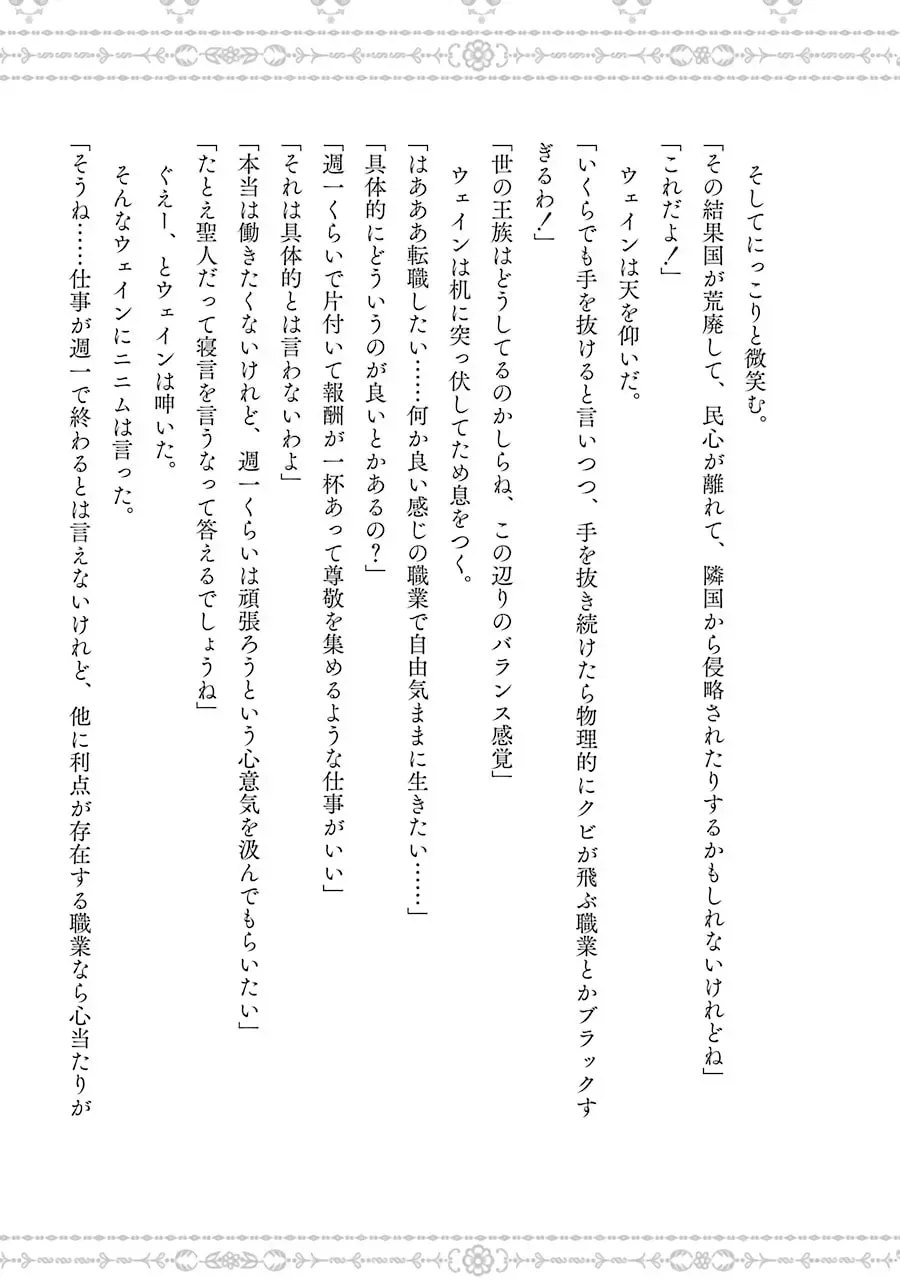 そしてにっこりと微笑む。
「その結果国が荒廃して、民心が離れて、隣国から侵略されたりするかもしれないけれどね」
「これだよ！」
ウェインは天を仰いだ。
「いくらでも手を抜けると言いつつ、手を抜き続けたら物理的にクビが飛ぶ職業とかブラックす
ぎるわ！」
「世の王族はどうしてるのかしらね、この辺りのバランス感覚」
ウェインは机に突っ伏してため息をつく。
「はあああ転職したい……何か良い感じの職業で自由気ままに生きたい……」
「具体的にどういうのが良いとかあるの？」
「週一くらいで片付いて報酬が一杯あって尊敬を集めるような仕事がいい」
「それは具体的とは言わないわよ」
「本当は働きたくないけれど、週一くらいは頑張ろうという心意気を汲んでもらいたい」
「たとえ聖人だって寝言を言うなって答えるでしょうね」
ぐえー、とウェインは呻いた。
そんなウェインにニニムは言った。
「そうね……仕事が週一で終わるとは言えないけれど、他に利点が存在する職業なら心当たりが